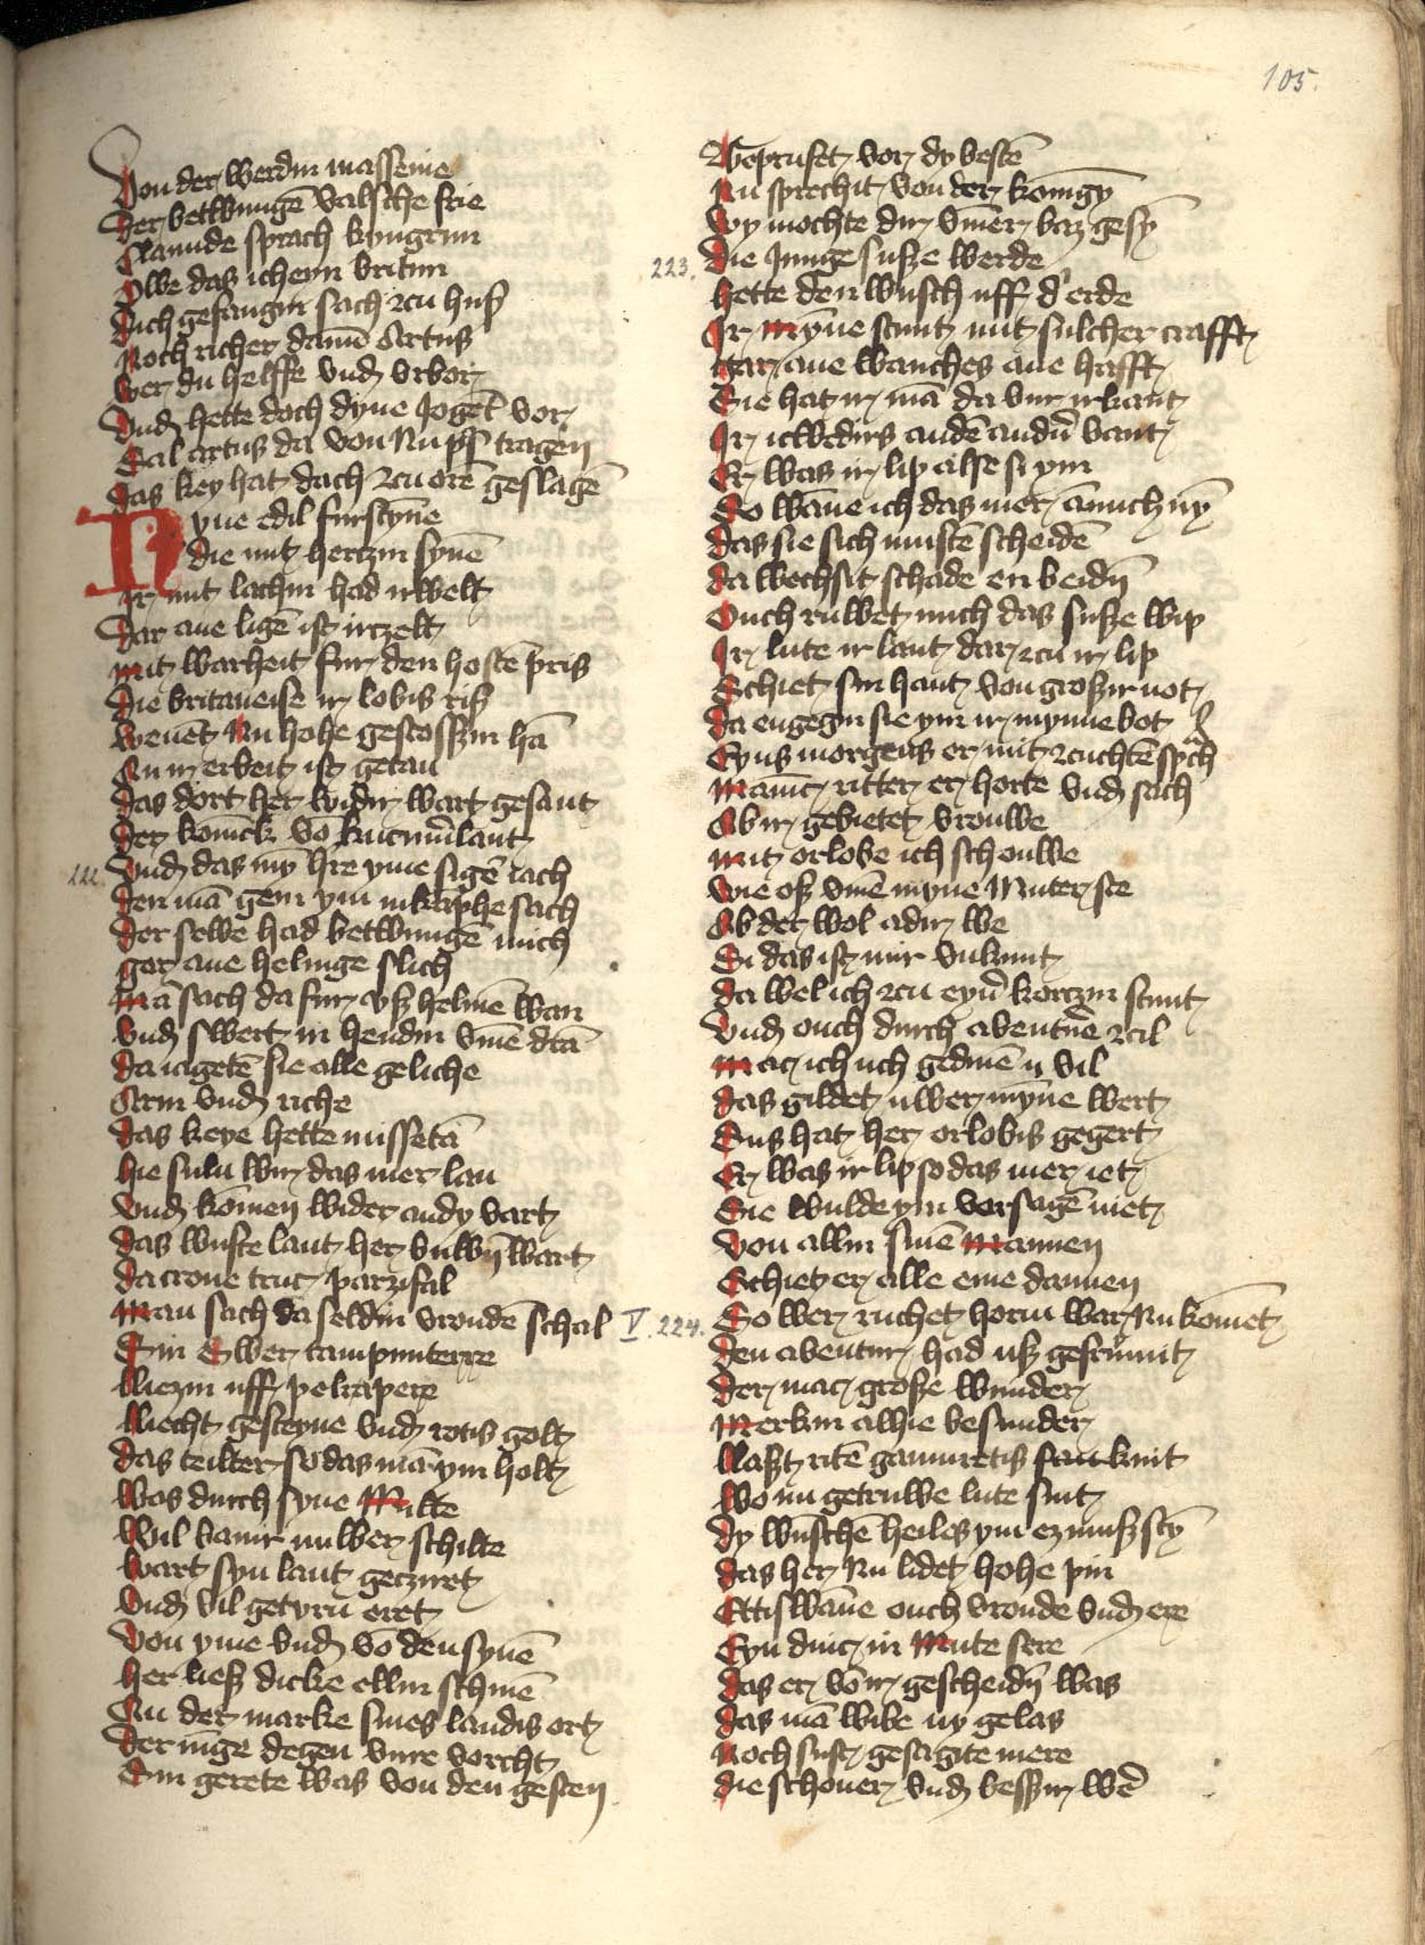 105.
Von der werdin massenie
Der betwungē valsche frie
Clamide sprach kyngrun
Owe das ich eyn britun
Dich gefangin sach zcu huß
Noch richer dannē Artus
Wer du helffe vnd vrbor
Vnd hette doch dyne Jogēt vor
Sal artus da von Nu pris tragēn
Das key hat dach zcu orē geslagē
Eyne edil furstȳne
Die mit hertzin synē
Ir mit lachin had irwelt
Dar ane ligē ist irczelt
Mit warheit fur den hostē pris
Die britaneise ir lobis riß
Wenēt Nu hohe gestossin hā
An ir erbeit ist getan
Das dort her widir wart gesant
Der konīck vō kucumīlant
222.
Vnd das mȳ hre yme sigē iach
Den mā gein ym in kāphe sach
Der selbe had betwungē mich
gar ane helinge slich
Mā sach da fur vß helmē wan
Vnd swert in hendin vmē dran
Da iagetē sie alle geliche
Arm vnd riche
Das keye hette missetā
hie sulu wir das mer lan
Vnd komen wider an dy vart
Das wuste lant her buwȳ wart
Da crone truc parzifal
Man sach da seldin vroudē schal
Sin swer tampunterre
Liezin uff pelrapere
Liecht gesteyne vnd rotis golt
Das teilter so das mā ym holt
Was durch syne Milte
Vil banir nuwer schilte
Wart syn lant geczirt
Vnd vil getyru eret
Von yme vnd vō den synē
her ließ dicke ellin schinē
An der marke sines landis ort
Der iūge degen vnre vorcht
Sin gerete was von den gesten
Geprufet vor dy bestē
Nu sprechit von der konigȳ
Wy mochte dir vmer baz gesȳ
223.
Die Junge suße werde
hette den wusch uff d' erde
Ir mȳne stunt mit sulcher crafft
gar ane wanches ane hafft
Sie hat ir mā da vur irkant
Ir icwedirs andē andīr vant
Er was ir lip alse si ym
So wāne ich das mer ānnich nȳ
Das sie sich mustē scheidē
Da wechsit schade en beidī
Ouch ruwet mich das suße wip
Ir lute ir lant dar zcu ir lip
Schiet sin hant von großir not
Da engegin sie ym ir mynne bot
Eyns morgens er mit zcuchtē sprch
Manīc ritter er horte vnd sach
Ab ir gebietet vrouwe
Mit orlobe ich schouwe
Wie oß vmē myne Muter ste
Ab der wol adir we
Si das ist mir vnkunt
Da wel ich zcu eynīr kortzin stunt
Vnd ouch durch abentuē zcil
Mac ich uch gedinē ȳ vil
Das gildet uwer mȳne wert
Sus hat her orlobis gegert
Er was ir lip so das mer iet
Sie wulde ym vorsagē niet
Von allin sinē Mannen
Schiet er alle eine dannen
V. 224.
So wer ruchet horin war Nu komēt
Den abentur had uß gefrumit
Der mac große wunder
Merkin alhie besunder
Last ritē gamuretis kint
Wo nu getruwe lute sint
Dy wuschē heiles ym ez muß stȳ
Das her Nu lidet hohe pin
Ettiswāne ouch vroude vnd ere
Eyn dinc in Mute sere
Das er vō ir gescheidī was
Das mā wibe ny gelas
Noch sust gesagite mere
Die schoner vnd bessir wē